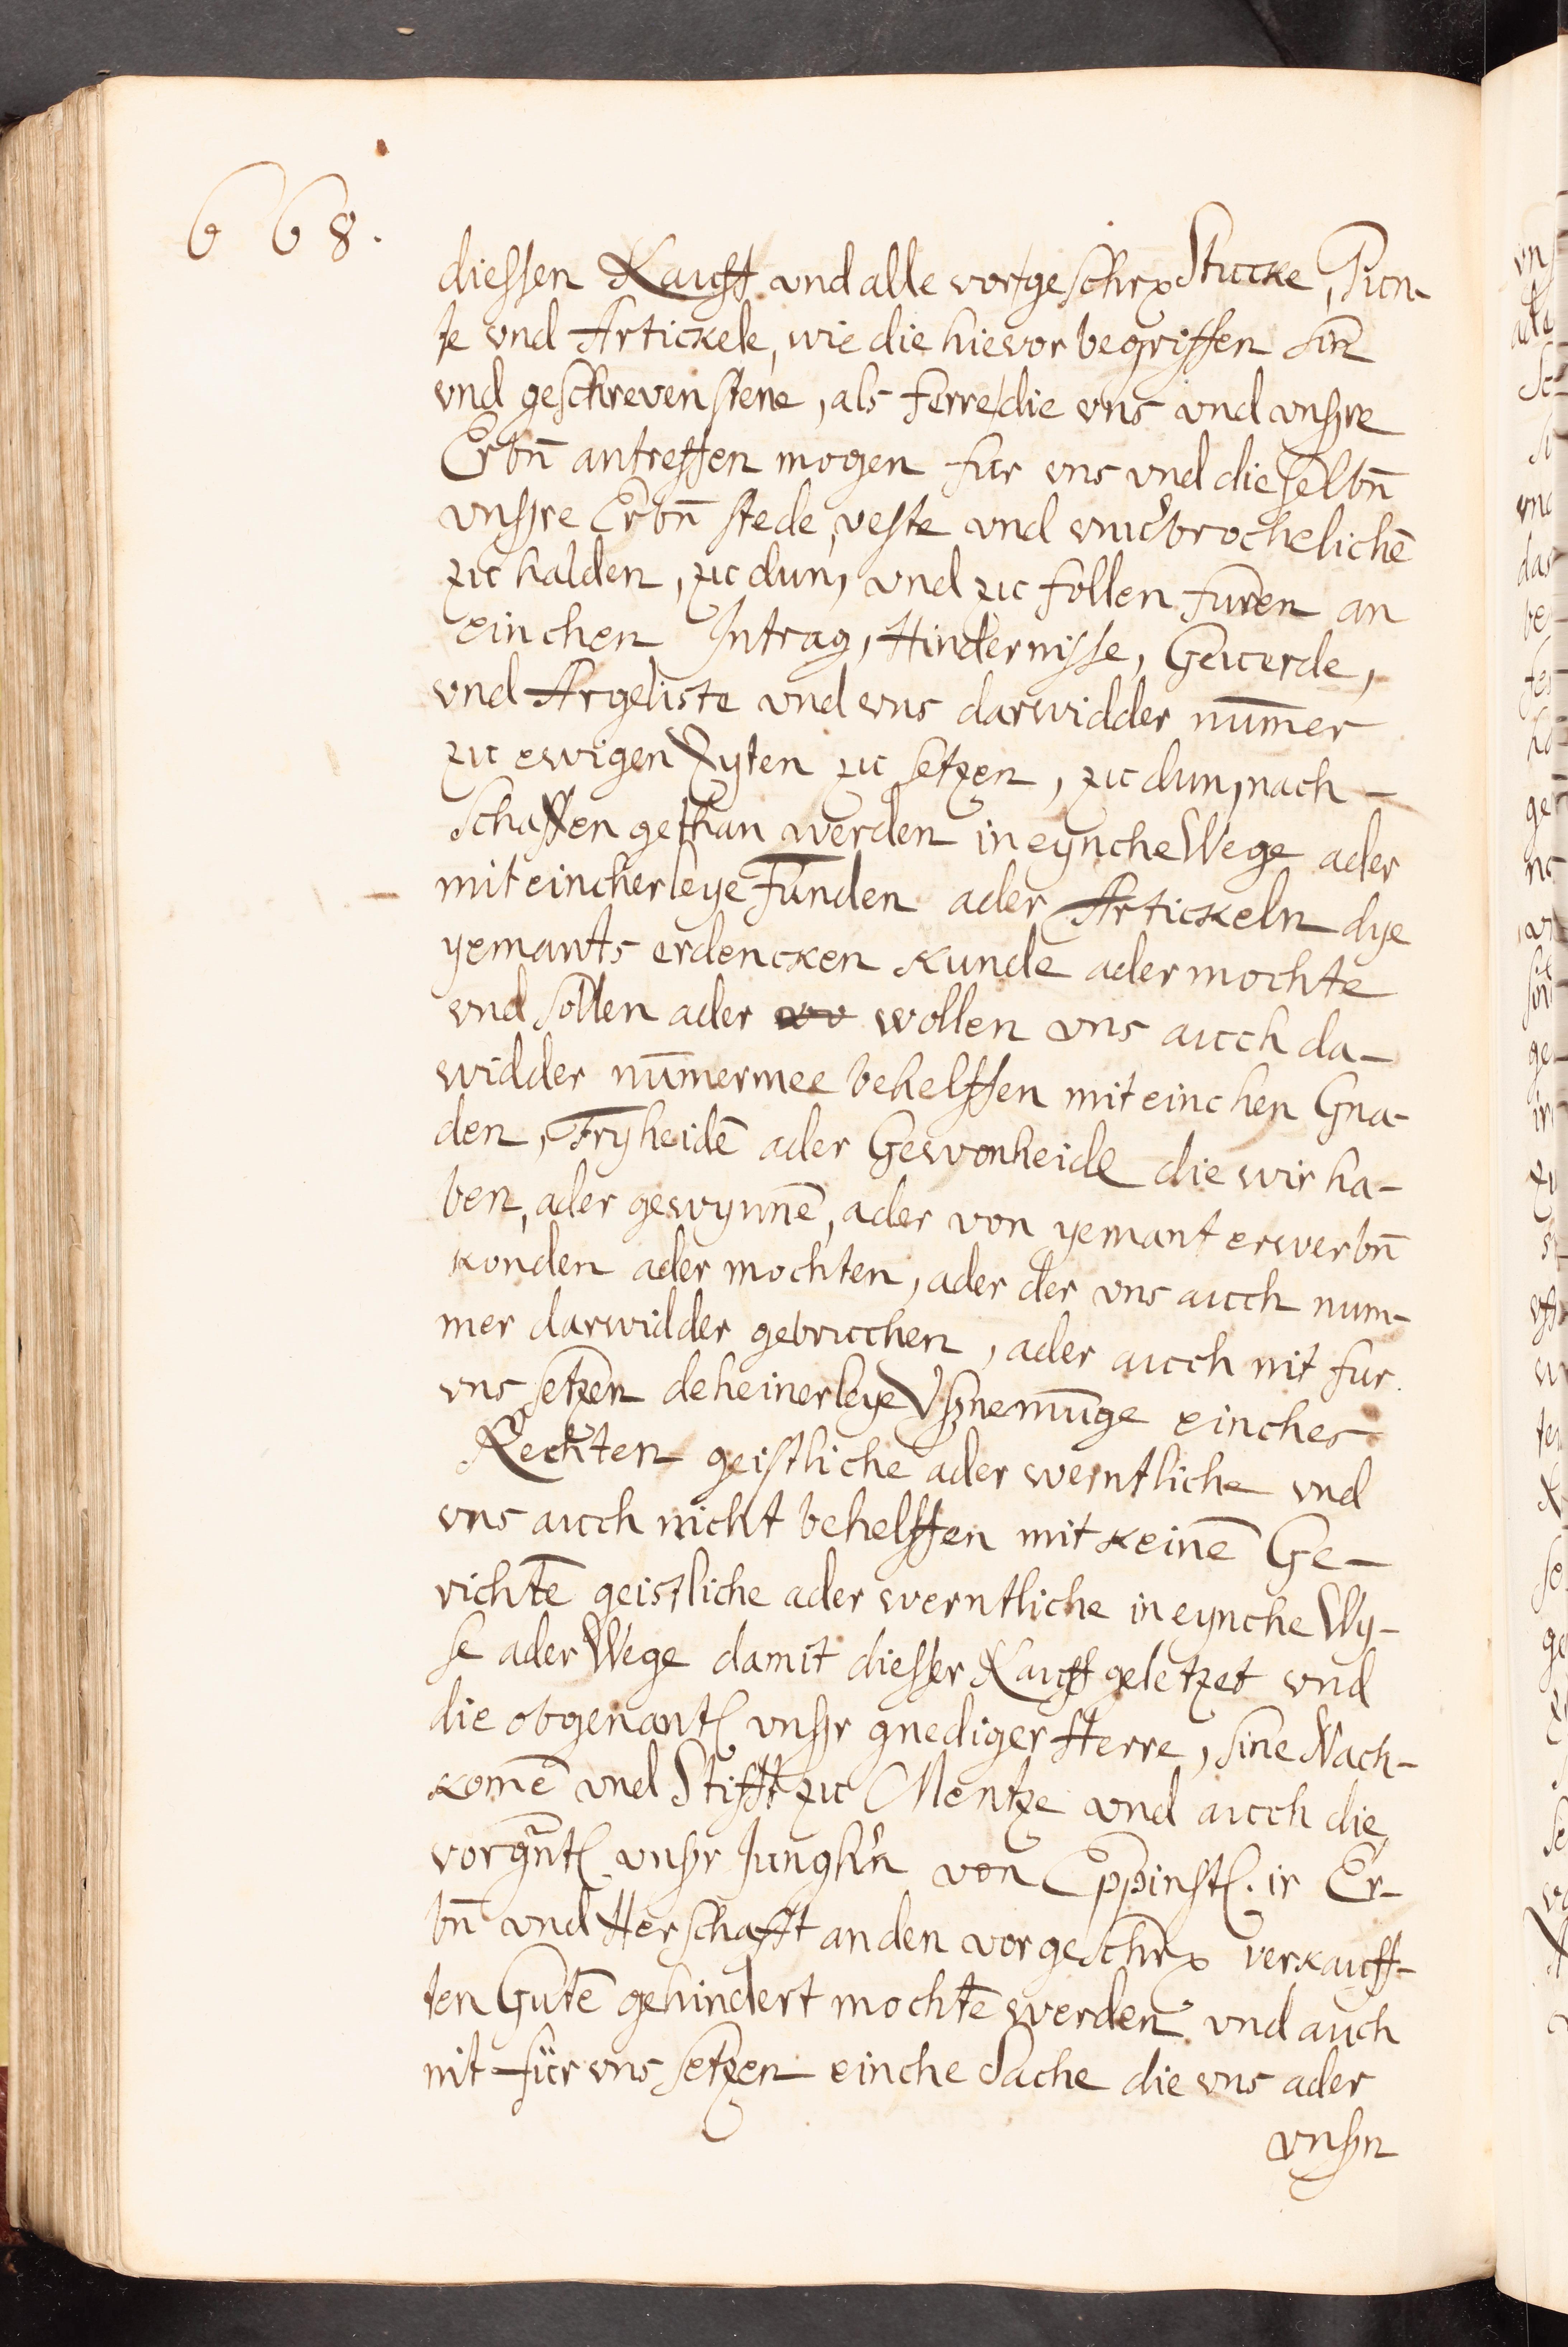 668.
diessen Kauff vnd alle vorgeschr Stucke, Pun-
te vnd Artickele, wie die hievor begriffen sin
vnd geschreven stene, als ferre die vns vnd vnsre
Erbn̄ antreffen mogen fur vns vnd dieselbn̄
vnsre Erbn̄ stede, veste vnd vnűbrochelichē
zu halden, zu dun, vnd zu follen furen an
einchen Intrag, Hindernisse, Geuerde,
vnd Argeliste vnd vns darwidder num̄er
zu ewigen Zyten zu setzen, zu dun, nach -
Schaffen gethan werden in eynche Wege ader
mit eincherleye Funden ader Artickeln dye
yemants erdencken kunde ader mochte
vnd sollen ader wollen vns auch da-
widder num̄ermee behelffen mit einchen Gna-
den, Fryheidē ader Gewonheide die wir ha-
ben, ader gewynnē, ader von yemant erwerbn̄
konden ader mochten, ader der vns auch num-
mer darwidder gebruchen, ader auch nit fur
vns setzen deheinerleye Vßnemūge einches
Rechten geistliche ader werntliche vnd
vns auch nicht behelffen mit keinē Ge-
richtē geistliche ader werntliche in eynche Wy-
se ader Wege damit diesser Kauff geletzet vnd
die obgenant vnsr gnediger Herre, sine Nach-
komē vnd Stifft zu Mentze vnd auch die
vorgn̄t vnsr Jungh'n von Eppinst. ir Er-
bn̄ vnd Herschafft an den vorgeschr verkauff-
ten Gutē gehindert mochtē werden vnd auch
nit für vns setzen einche Sache die vns ader
vnsn